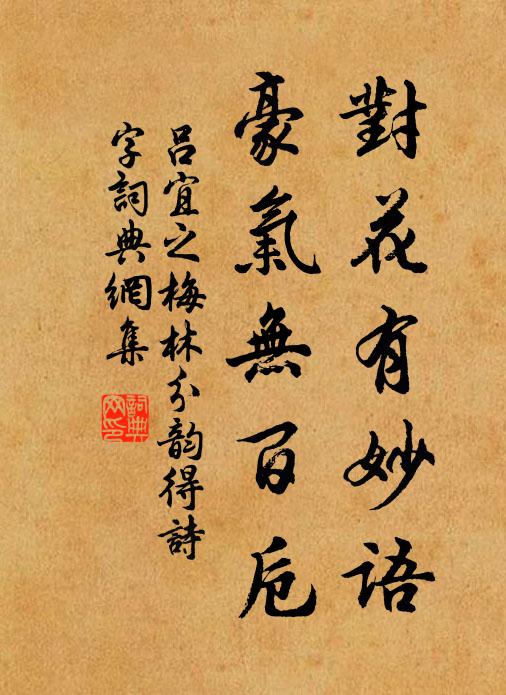 對花有妙語
豪氣無百卮
呂宜之梅林分韵得詩
字詞典網集
詞典網印